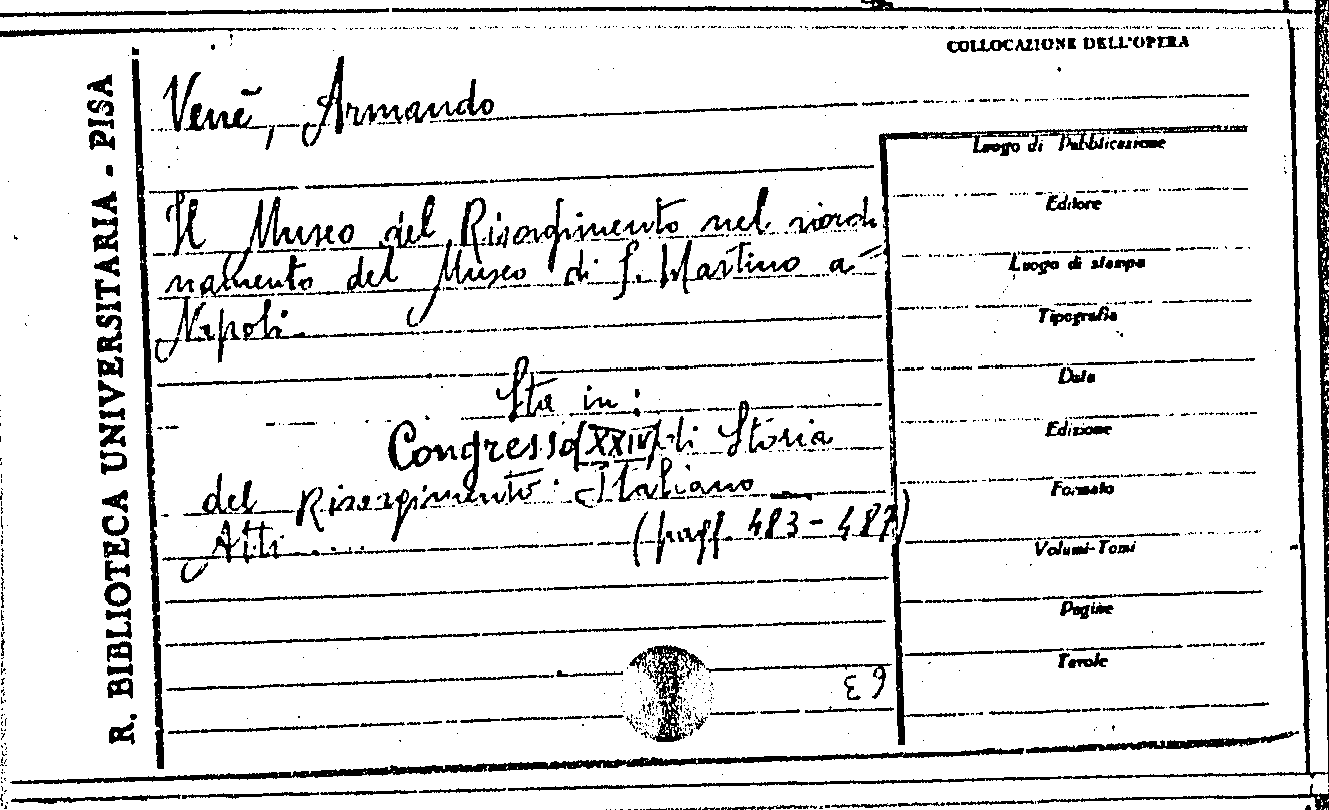 COLLOCAZIONE DELL'OPERA
R. BIBLIOTECA UNIVERSITARIA - PISA
Venè, Armando
Il Museo del Risorgimento nel riordi
namento del Museo di S. Martino a
Napoli.
Sta in:
Congresso (XXIV) di Storia
del Risorgimento Italiano
Atti .....
(pagg. 483-487)
Luogo di Pubblicazione
Editore
Luogo di stampa
Tipografia
Data
Edizione
Formato
Volumi-Tomi
Pagine
Tavole